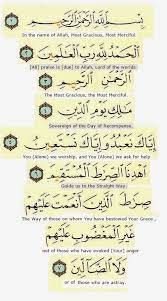 بِسْمِ اللَّهِ الرَّحْمَٰنِ الرَّحِيمِ
In the name of Allah, Most Gracious, Most Merciful.
الْحَمْدُ لِلَّهِ رَبِّ الْعَالَمِينَ
[All] praise is [due] to Allah, Lord of the worlds
الرَّحْمَٰنِ الرَّحِيمِ
The Most Gracious, the Most Merciful.
مَالِكِ يَوْمِ الدِّينِ
Sovereign of the Day of Recompense.
إِيَّاكَ نَعْبُدُ وَإِيَّاكَ نَسْتَعِينُ
You (Alone) we worship, and You (Alone) we ask for help
اهْدِنَا الصِّرَاطَ الْمُسْتَقِيمَ
Guide us to the Straight Way.
صِرَاطَ الَّذِينَ أَنْعَمْتَ عَلَيْهِمْ
The Way of those on whom You have bestowed Your Grace,
غَيْرِ الْمَغْضُوبِ عَلَيْهِمْ
not of those who have evoked [Your] anger
وَلَا الضَّالِّينَ
or of those who are astray.